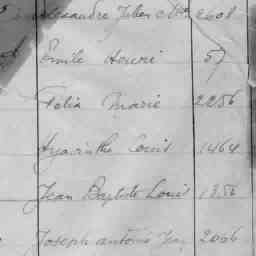 Alexandre Jules 2608
Emile Henri 57
Felix Marie 2256
Hyacinthe Louis 1464
Jean Baptiste Louis 1356
Joseph Antoine 2066